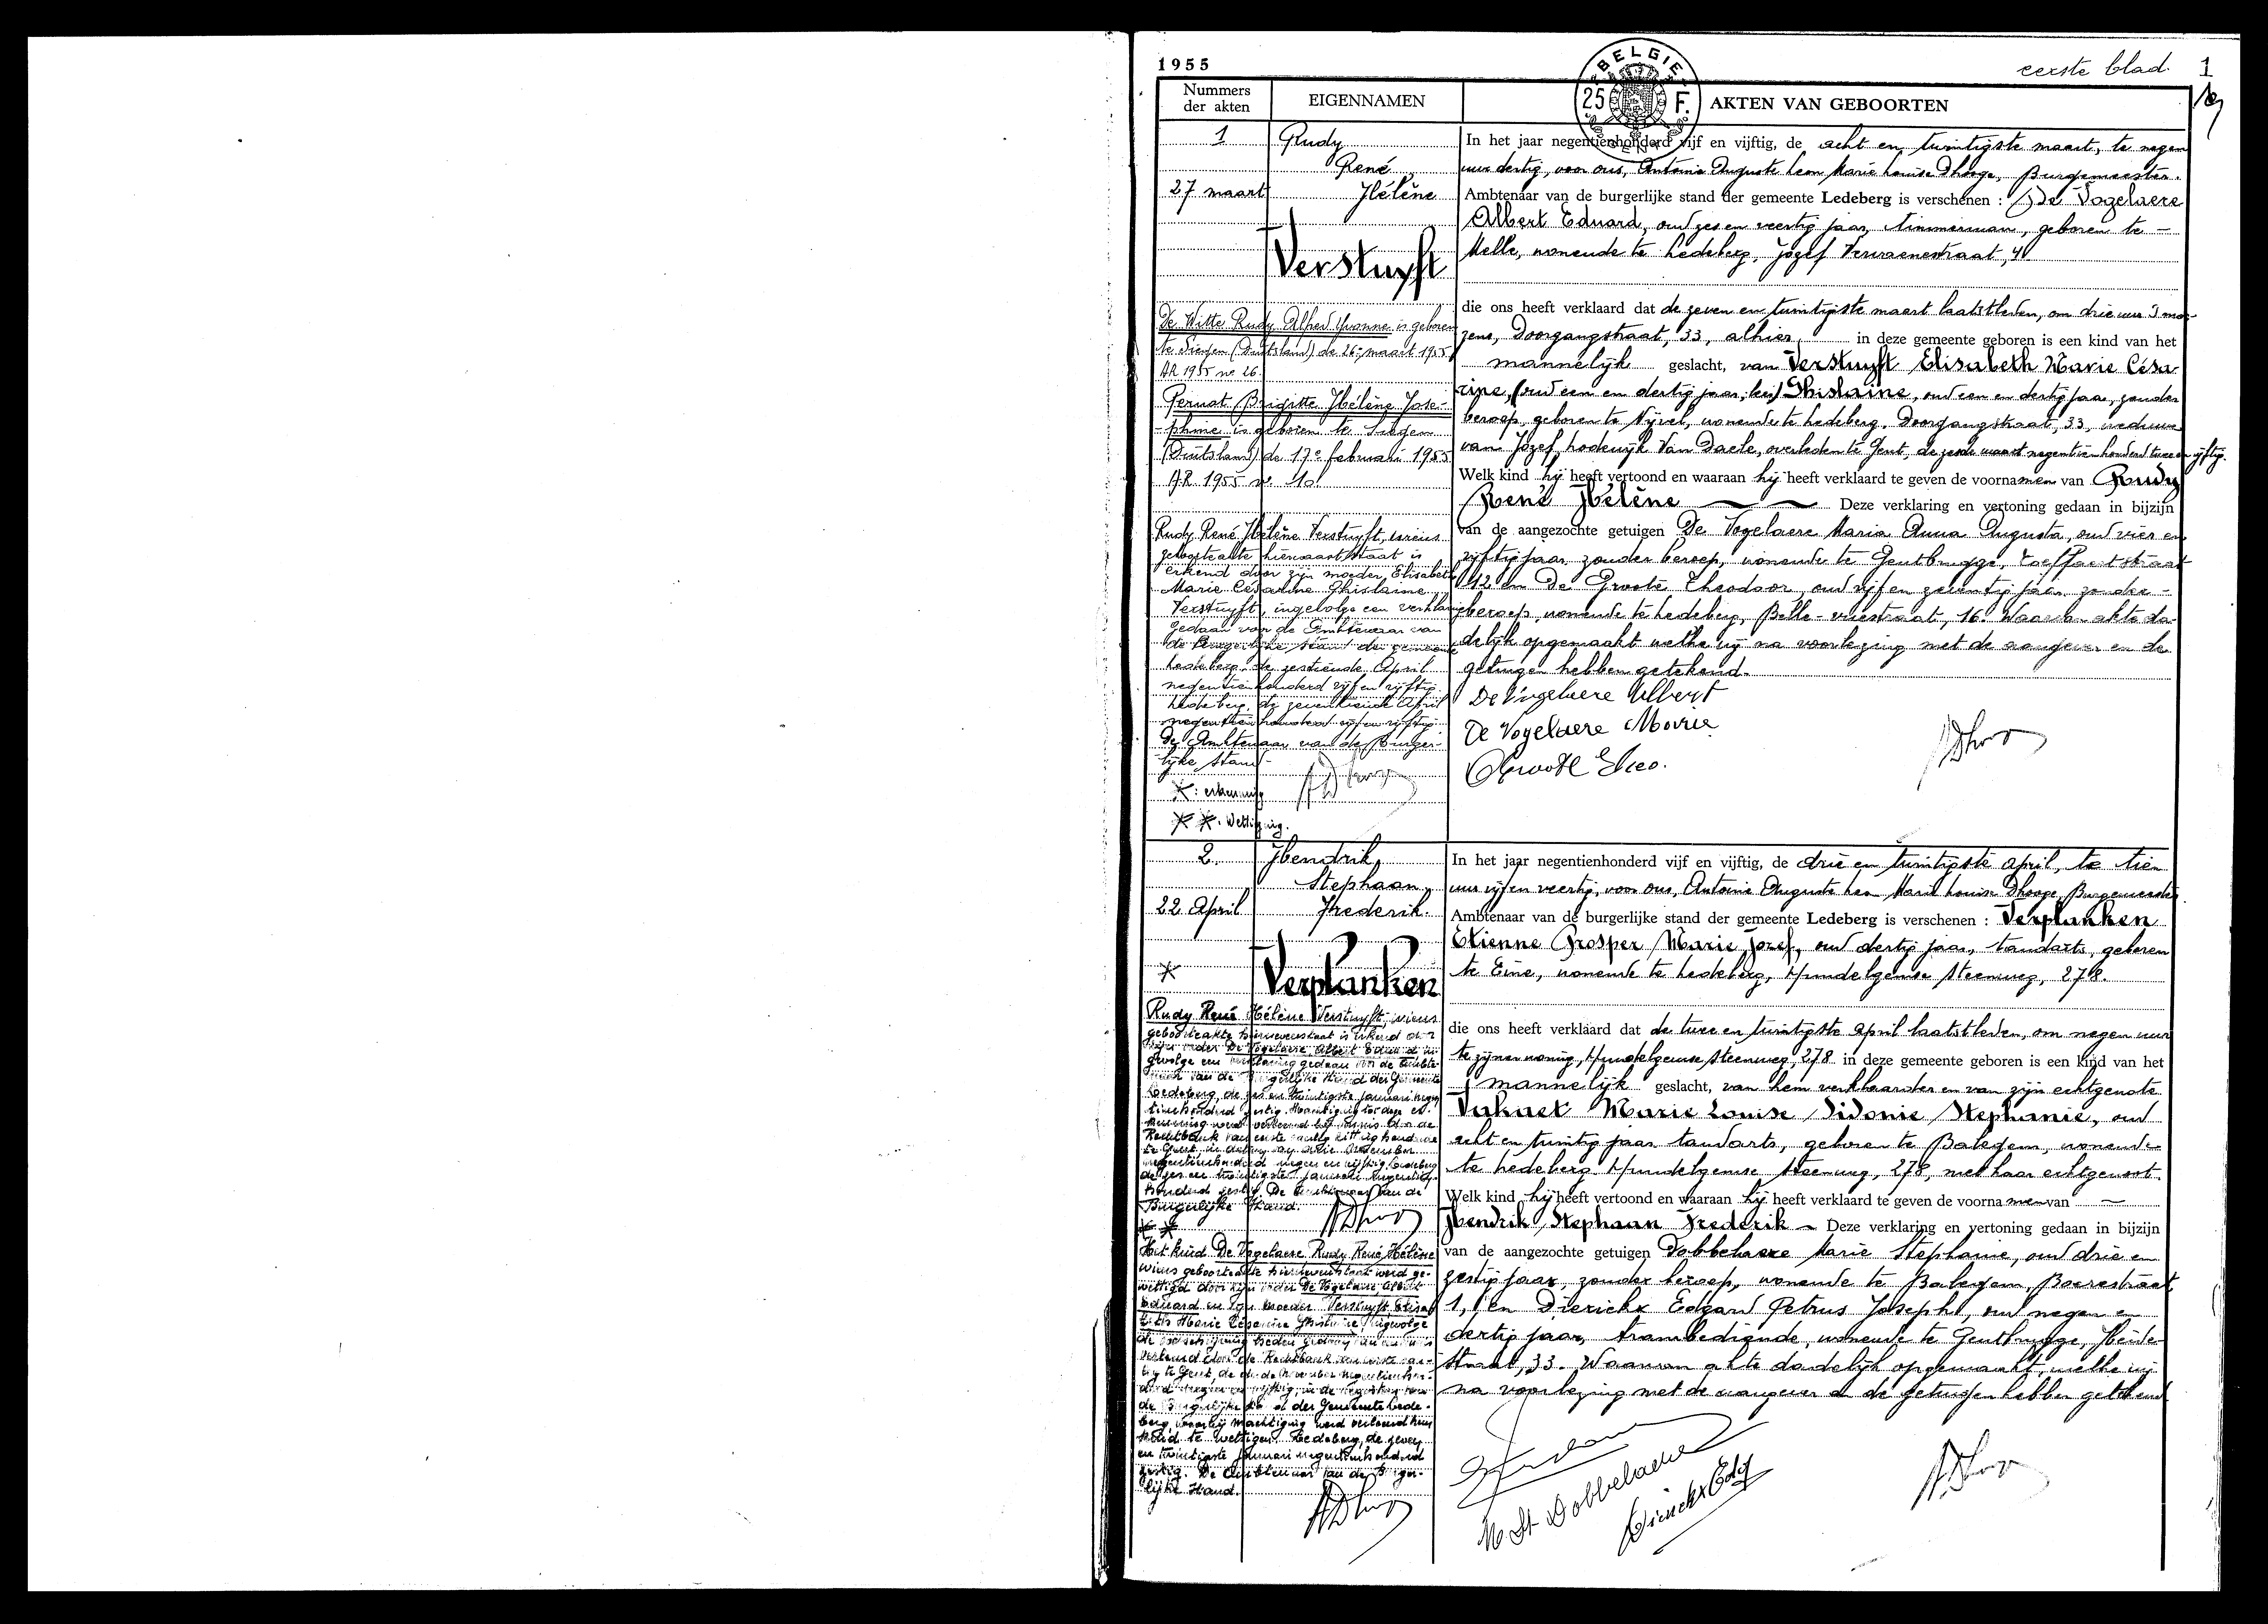 1955
eerste blad. 1
BELGIE
25 F.
Nummers der akten
EIGENNAMEN
AKTEN VAN GEBOORTEN
1
27 maart
Rudy
René
Hélène
Verstuyft
In het jaar negentienhonderd vijf en vijftig, de acht en twintigste maart, te negen
uur dertig, voor ons, Antoine Auguste Leon Marie Louise Dhooge, Burgemeester.
Ambtenaar van de burgerlijke stand der gemeente Ledeberg is verschenen : De Vogelaere
Albert Eduard, oud zes en veertig jaar, timmerman, geboren te —
Melle, wonende te Ledeberg, Jozef Vervaenestraat, 4
die ons heeft verklaard dat de zeven en twintigste maart laatstleden, om drie uur 's mor-
gens, Doorgangstraat, 33, alhier in deze gemeente geboren is een kind van het
mannelijk geslacht, van Verstuyft Elisabeth Marie Césa-
rine, (oud een en dertig jaar, ) Ghislaine, oud een en dertig jaar, zonder
beroep, geboren te Nijvel, wonende te Ledeberg, Doorgangstraat, 33, weduwe
van Jozef Lodewijk Van Daele, overleden te Gent, de zesde maart negentienhonderd twee en vijftig.
Welk kind hij heeft vertoond en waaraan hij heeft verklaard te geven de voornamen van Rudy
René Hélène Deze verklaring en vertoning gedaan in bijzijn
van de aangezochte getuigen De Vogelaere Maria Anna Augusta, oud vier en
vijftig jaar, zonder beroep, wonende te Gentbrugge, Toeffaertstraat
12 en De Groote Theodoor, oud vijf en zeventig jaar, zonder -
beroep, wonende te Ledeberg, Belle-vuestraat, 16. Waarvan akte da-
delijk opgemaakt welke wij na voorlezing met de aangever en de
getuigen hebben getekend.
De Vogelaere Albert
De Vogelaere Maria
De Groote Theo.
De Witte Rudy Alfred Yvonne is geboren
te Siegen (Duitsland) de 26e maart 1955
AR 1955 nr 26.
Pernat Brigitte Hélène José-
phine is geboren te Siegen
(Duitsland) de 17e februari 1955
A.R. 1955 nr 10.
Rudy René Hélène Verstuyft, wiens
geboorteakte hiernaast staat is
erkend door zijn moeder, Elisabeth
Marie Césarine Ghislaine
Verstuyft, ingevolge een verklaring
gedaan voor de Ambtenaar van
de Burgerlijke stand der gemeente
Ledeberg, de zestiende April
negentienhonderd vijf en vijftig.
Ledeberg, de zeventiende April
negentienhonderd vijf en vijftig.
De Ambtenaar van de Burger-
lijke stand.
* : erkenning
* * : Wettiging.
2.
22 April
Hendrik,
Stephaan,
Frederik.
Verplanken
In het jaar negentienhonderd vijf en vijftig, de drie en twintigste april, te tien
uur vijf en veertig, voor ons, Antoine Auguste Leon Marie Louise Dhooge, Burgemeester
Ambtenaar van de burgerlijke stand der gemeente Ledeberg is verschenen : Verplanken
Etienne Prosper Marie Jozef, oud dertig jaar, tandarts, geboren
te Eine, wonende te Ledeberg, Hundelgemse steenweg, 278.
die ons heeft verklaard dat de twee en twintigste april laatstleden, om negen uur
te zijner woning, Hundelgemse steenweg, 278 in deze gemeente geboren is een kind van het
mannelijk geslacht, van hem verklaarder en van zijn echtgenote
Marie Louise Sidonie Stephanie, oud
acht en twintig jaar, tandarts, geboren te Balegem, wonende
te Ledeberg, Hundelgemse steenweg, 278, met haar echtgenoot.
Welk kind hij heeft vertoond en waaraan hij heeft verklaard te geven de voornamen van —
Hendrik Stephaan Frederik — Deze verklaring en vertoning gedaan in bijzijn
van de aangezochte getuigen Dobbelaere Marie Stephanie, oud drie en
zestig jaar, zonder beroep, wonende te Balegem, Boerestraat,
1, en Dierickx Edgard Petrus Joseph, oud negen en
dertig jaar, trambediende, wonende te Gentbrugge, Heide-
straat, 33. Waarvan akte dadelijk opgemaakt, welke wij
na voorlezing met de aangever en de getuigen hebben getekend
M St Dobbelaere
Dierickx Edg
*
Rudy René Hélène Verstuyft, wiens
geboorteakte hierneven staat is erkend door
zijn vader De Vogelaere, Albert Eduard in-
gevolge een verklaring gedaan voor de Ambte-
naar van de Burgerlijke Stand der Gemeente
Ledeberg, de zes en twintigste januari negen
tienhonderd zestig. Machtiging tot deze er-
kenning werd verleend bij vonnis van de
Rechtbank van eerste aanleg zitting houdende
te Gent, in datum van drie December
negentienhonderd negen en vijftig. Ledeberg
de zes en twintigste januari negentien-
honderd zestig. De Ambtenaar van de
Burgerlijke Stand.
* *
Het kind De Vogelaere Rudy René Hélène
wiens geboorteakte hierneven staat werd ge-
wettigd door zijn vader De Vogelaere Albert
Eduard en zijn moeder Verstuyft Elisa-
beth Marie Césarine Ghislaine, ingevolge
de Burgerlijke Stand der Gemeente Lede-
berg, waarbij machtiging werd verleend hun
kind te wettigen. Ledeberg, de zeven
en twintigste januari negentienhonderd
zestig. De Ambtenaar van de Burger-
lijke Stand.